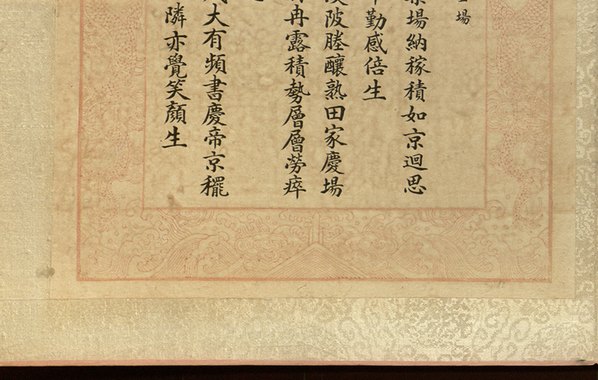 場
場納稼積如京迴思
勤感倍生
陂塍釀熟田家慶場
冉露積勢層層勞瘁
大有頻書慶帝京穲
隣亦覺笑顏生